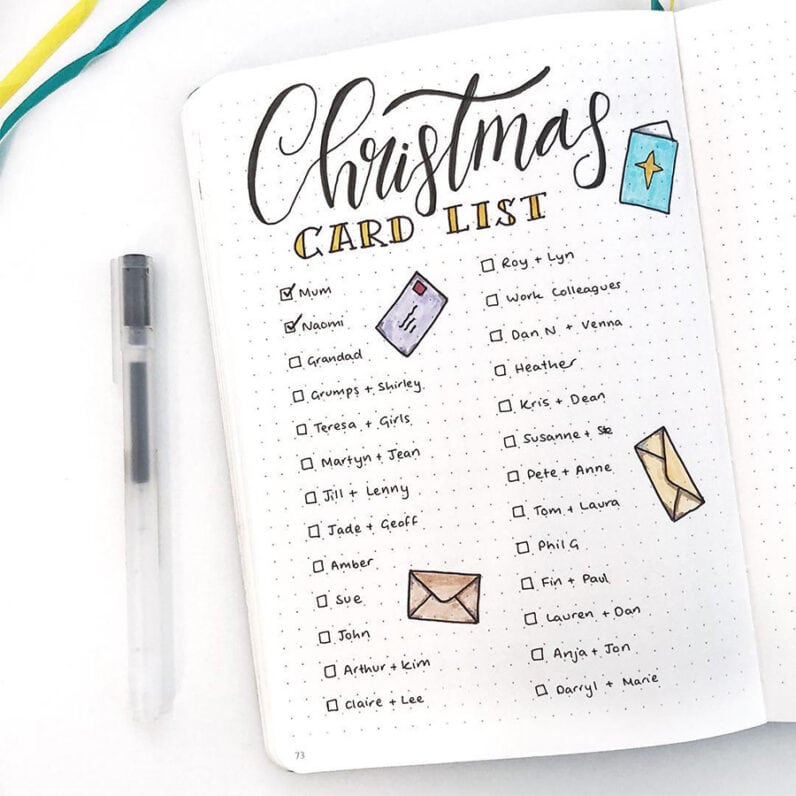 Christmas
CARD LIST
Mum
Naomi
Grandad
Grumps + Shirley
Teresa + Girls
Martyn + Jean
Jill + Lenny
Jade + Geoff
Amber
Sue
John
Arthur + Kim
Claire + Lee
Roy + Lyn
Work Colleagues
Dan N + Venna
Heather
Kris + Dean
Susanne + Ste
Pete + Anne
Tom + Laura
Phil G
Fin + Paul
Lauren + Dan
Anja + Jon
Darryl + Marie
73